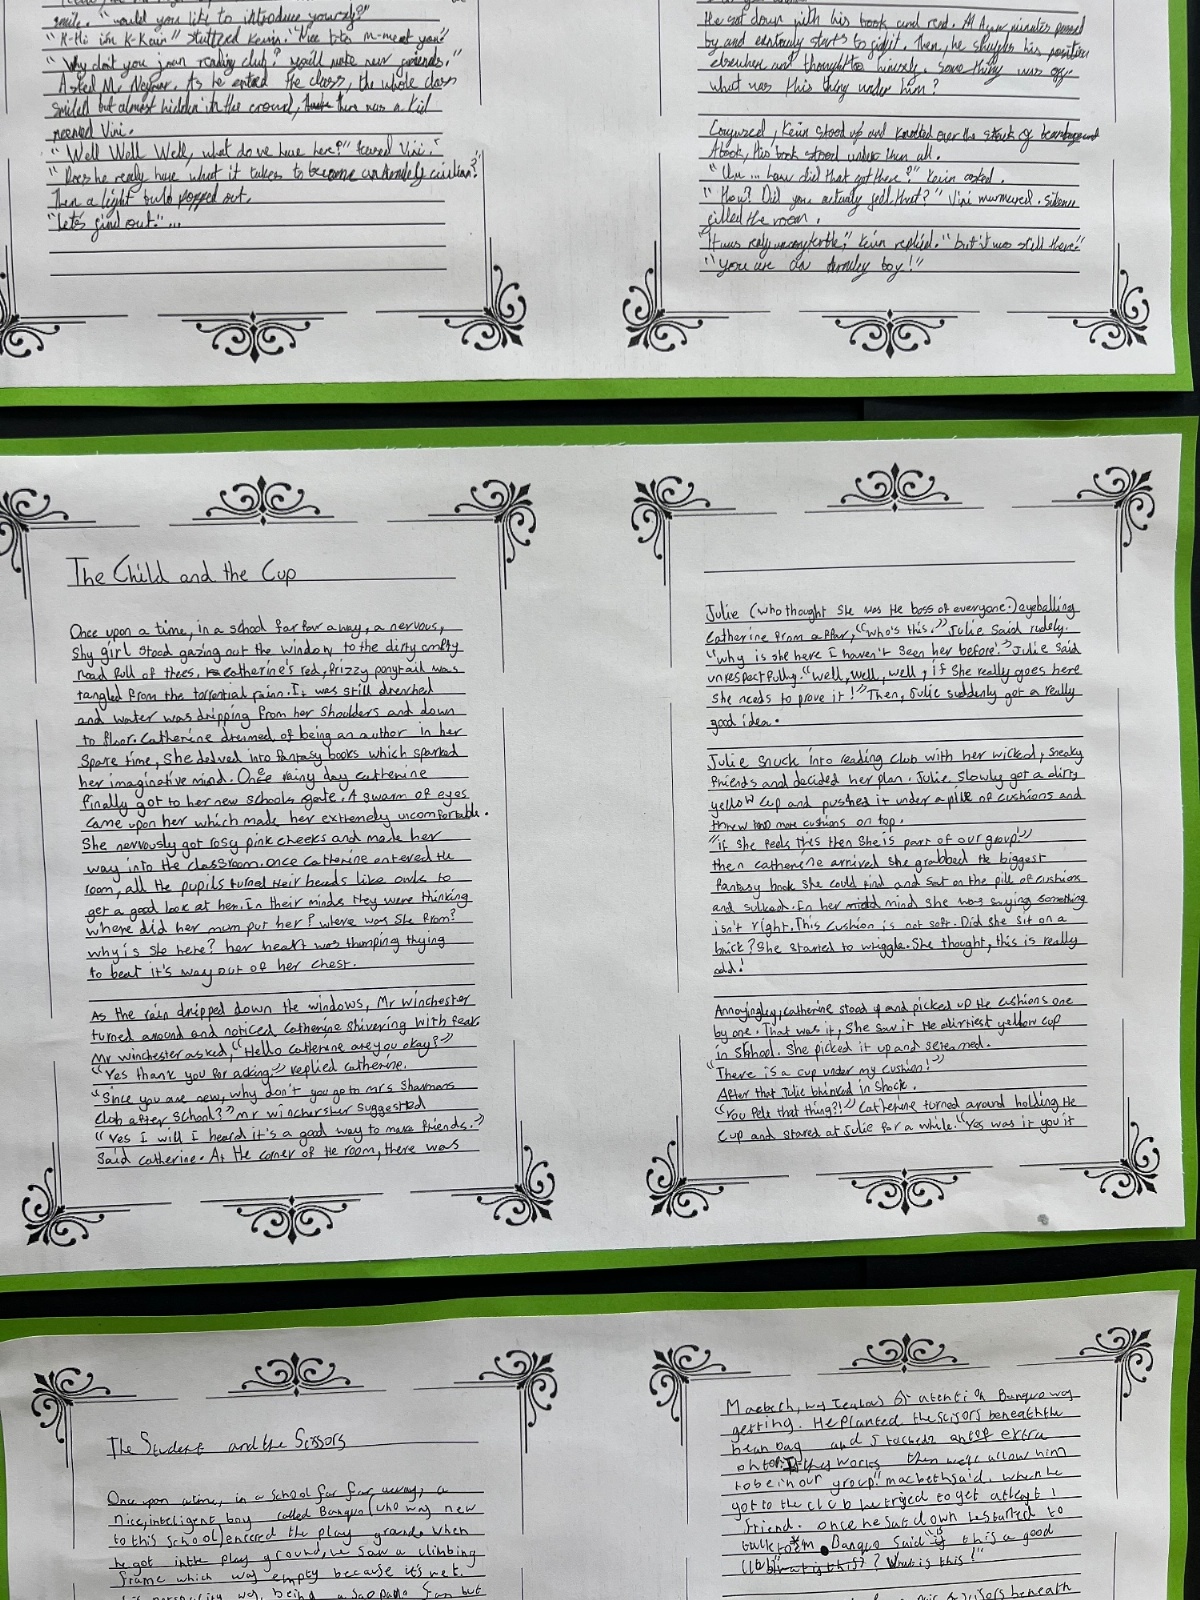 smile. "would you like to introduce yourself?"
"K-Hi im K-Kein" stuttered Kevin. "Nice to m-meet you"
"Why don't you join reading club? you'll make new friends."
Asked M. Neymar. As he entered the class, the whole class
smiled but almost hidden in the crowd, there was a kid
named Vini.
"Well Well Well, what do we have here?" teased Vini.
"Does he really have what it takes to become an
Then a light bulb popped out.
"Let's find out."...
He sat down with his book and read. A few minutes passed
by and starts to fidget. Then, he shuffles his position
and thought to himself. Something was off.
what was this thing under him?
Confused, Kein stood up and over the stack of
"Um... how did that get there?" Kein asked.
"How? Did you actually feel that?" Vini murmured. Silence
filled the room.
"It was uncomfortable," Kein replied. "but it was still there"
"You are an boy!"
The Child and the Cup
Once upon a time, in a school far far away, a nervous,
Shy girl stood gazing out the window to the dirty empty
road full of trees, Catherine's red, frizzy ponytail was
tangled from the torrential rain. It was still drenched
and water was dripping from her shoulders and down
to floor. Catherine dreamed of being an author in her
Spare time, She delved into fantasy books which sparked
her imaginative mind. Once rainy day Catherine
finally got to her new schools gate. A swarm of eyes
came upon her which made her extremely uncomfortable.
She nervously got rosy pink cheeks and made her
way into the classroom. Once Catherine entered the
room, all the pupils turned their heads like owls to
get a good look at her. In their minds they were thinking
where did her mum put her? where was she from?
why is she here? her heart was thumping thying
to beat it's way out of her chest.
As the rain dripped down the windows, Mr Winchester
turned around and noticed Catherine Shivering with fear.
Mr Winchester asked, "Hello Catherine are you okay?"
"Yes thank you for asking." replied Catherine.
"Since you are new, why don't you go to mrs Sharmans
Club after School?" mr winchersher suggested
"Yes I will I heard it's a good way to make friends."
Said Catherine. At the corner of the room, there was
Julie (who thought She was the boss of everyone.) eyeballing
Catherine from afar, "Who's this." Julie Said rudely.
"why is she here I haven't seen her before." Julie said
unrespectfully. "well, well, well, if She really goes here
She needs to prove it!" Then, Julie suddenly got a really
good idea.
Julie snuck into reading club with her wicked, sneaky
friends and decided her plan. Julie slowly got a dirty
yellow cup and pushed it under a pile of cushions and
threw two more cushions on top.
"if She feels this then She is part of our group!"
then catherine arrived She grabbed the biggest
fantasy book She could find and Sat on the pile of cushions
and sulked. In her midd mind She was saying something
isn't right. This cushion is not soft. Did she sit on a
brick? She started to wriggle. She thought, this is really
odd!
Annoyingly, catherine stood up and picked up the cushions one
by one. That was it, She saw it the dirtiest yellow cup
in School. She picked it up and screamed.
"There is a cup under my cushion!"
After that Julie blinked in shock.
"You felt that thing?!" Catherine turned around holding the
Cup and stared at Julie for a while. "Yes was it you it
The Student and the Scissors
Once upon a time, in a school far far away, a
nice, inteligent boy called Banquo (who was new
to this School) entered the play ground. When
he got in the play ground, he saw a climbing
frame which was empty because it's wet.
being a fan but
Macbeth, was Jealous of atention Banquo was
getting. He planted the scisors beneath the
bean bag and stacked extra
on top. If this works then we'll allow him
to be in our group!" macbeth said, when he
got to the club he tryed to get atleast 1
friend. once he sat down he started to
Banquo Said "is this a good
What is this!"
scissors beneath